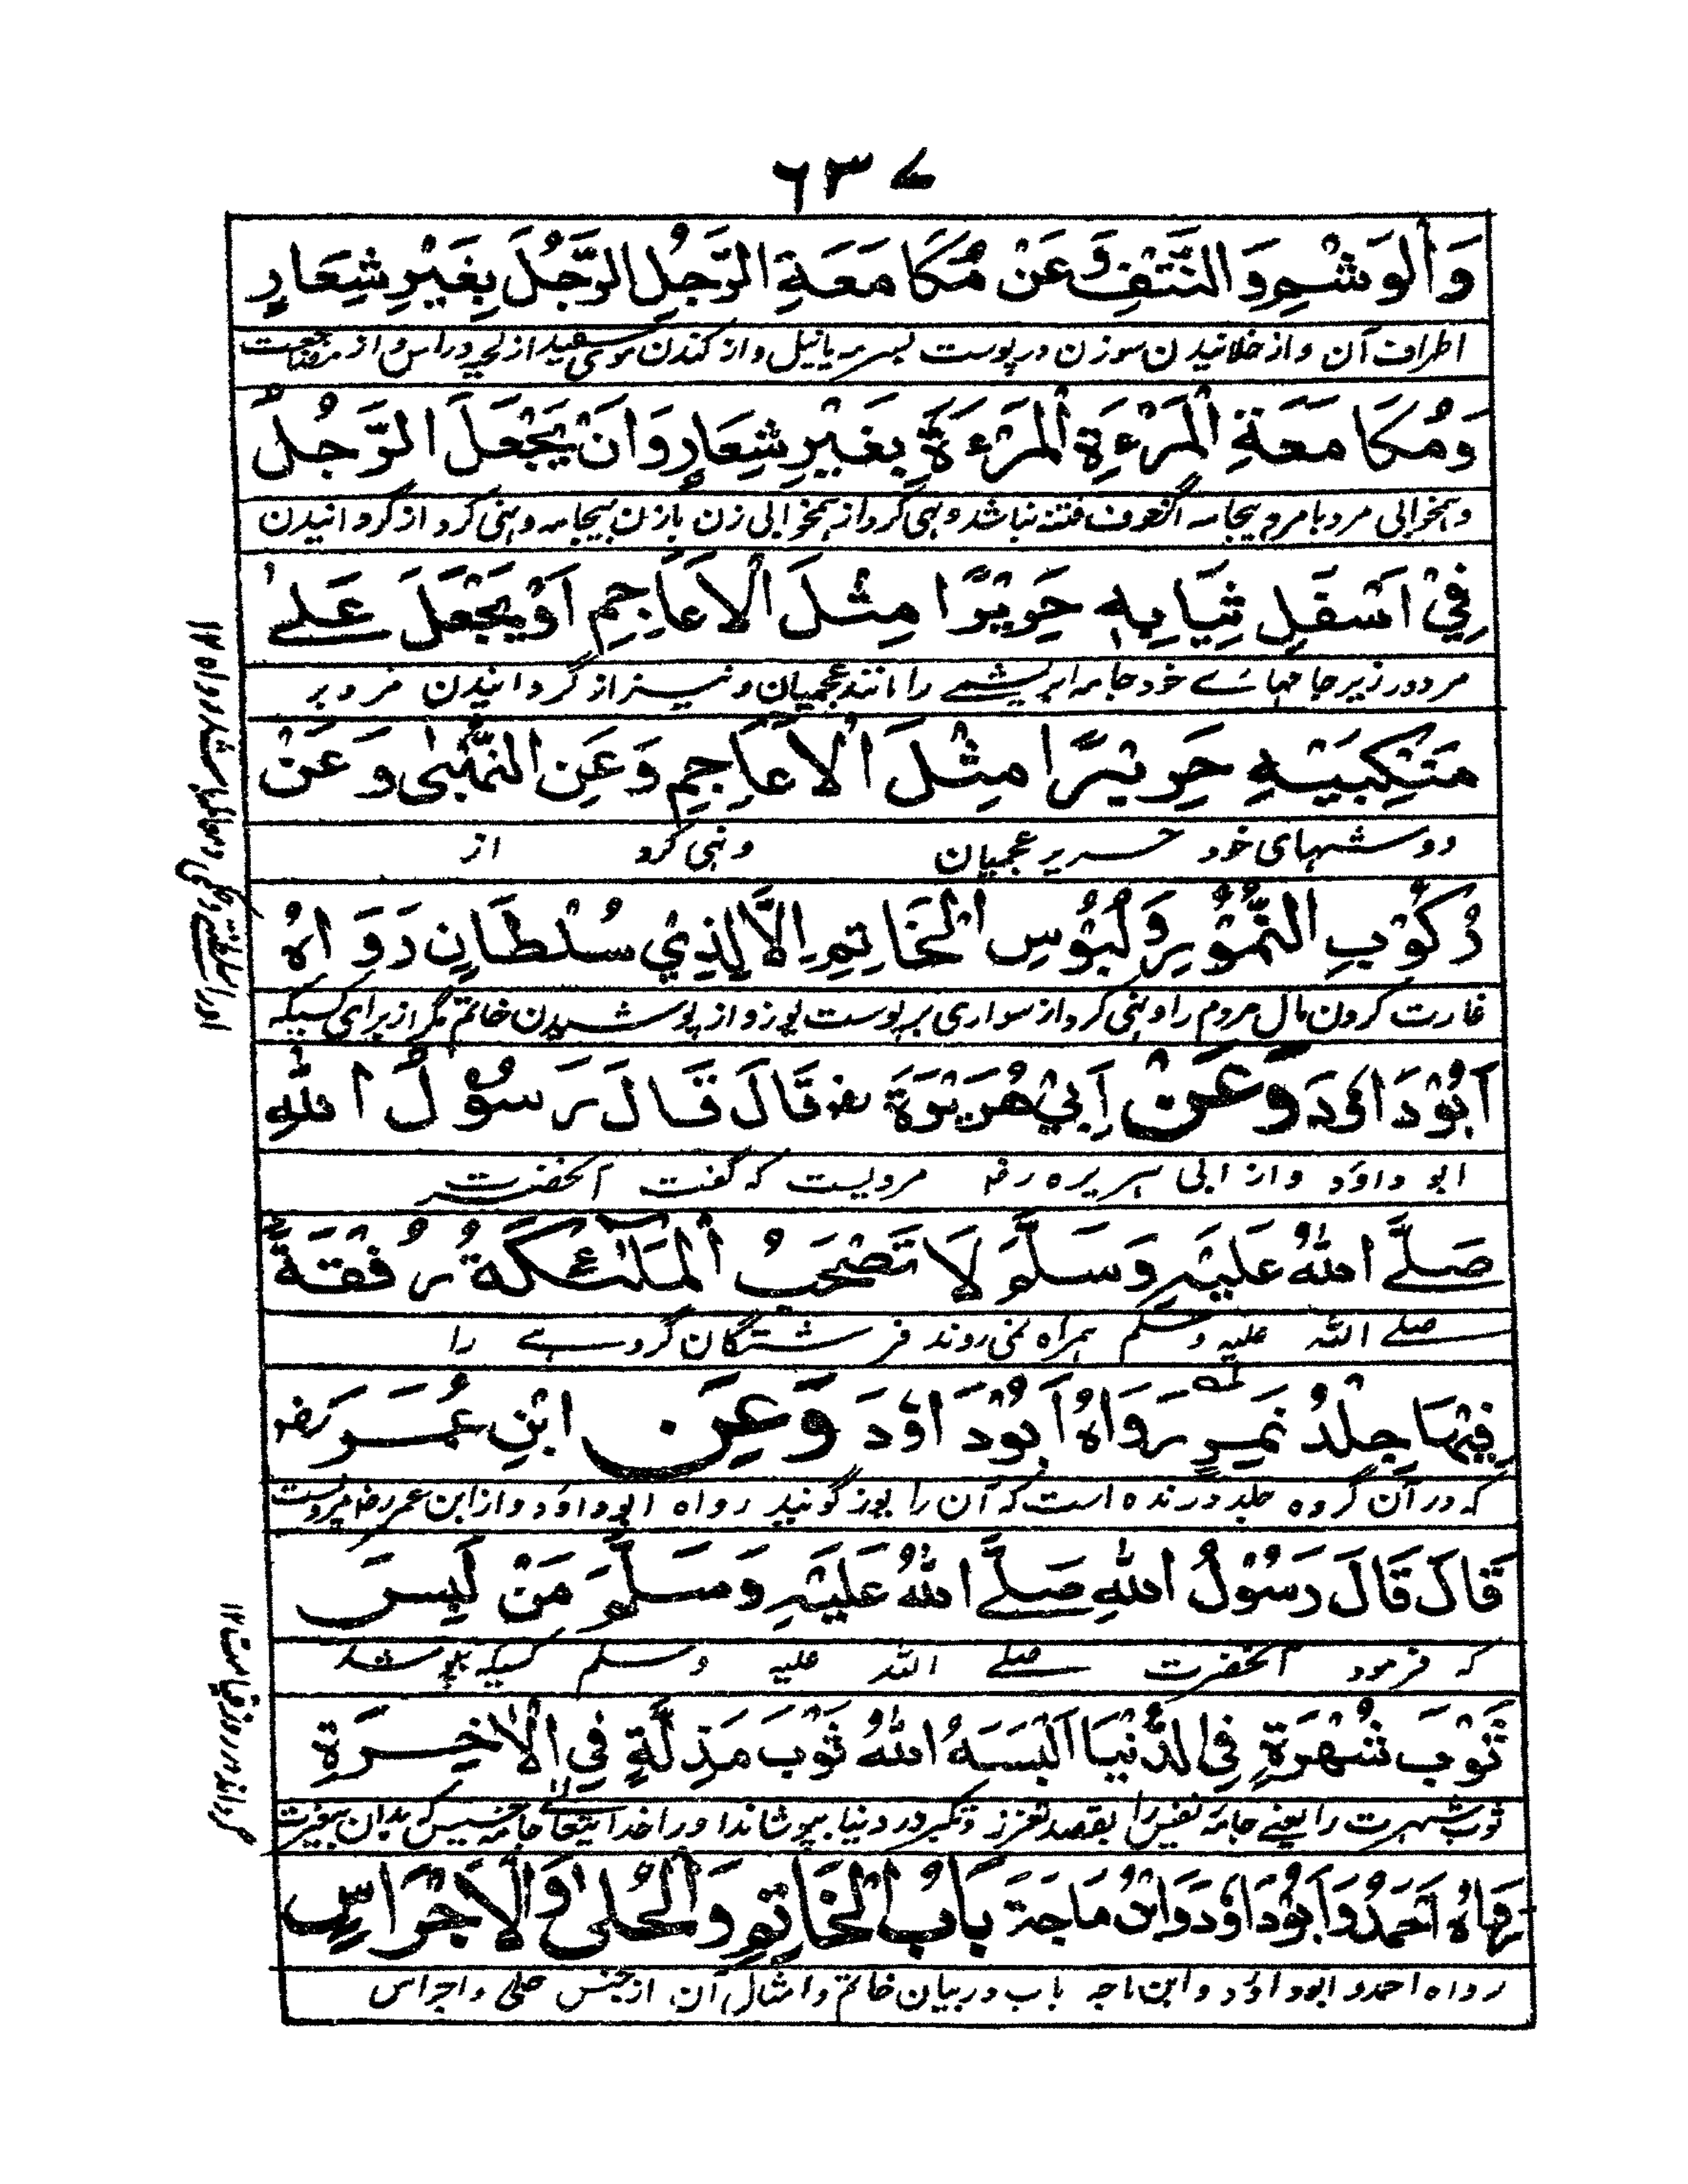 ٦٣٧
وَالْوَشْمِ وَالنَّتْفِ وَعَنْ مُكَامَعَةِ الرَّجُلِ الرَّجُلَ بِغَيْرِ شِعَارٍ
اطراف آن و از خلانیدن سوزن در پوست بسرمہ یا نیل و از کندن موی سفید از لحیہ و راس و از مضاجعت
وَمُكَامَعَةِ الْمَرْءَةِ الْمَرْءَةَ بِغَيْرِ شِعَارٍ وَاَنْ يَجْعَلَ الرَّجُلُ
و همخوابی مرد با مرد بیجامہ اگر خوف فتنہ نباشد و نہی کرد از همخوابی زن بازن بیجامہ و نہی کرد از گردانیدن
فِيْ اَسْفَلِ ثِيَابِهٖ حَرِيْرًا مِثْلَ الْاَعَاجِمِ اَوْ يَجْعَلَ عَلٰے
مرد در زیر جامہائے خود جامہ ابریشمے را مانند عجمیان و نیز از گردانیدن مرد بر
مَنْكِبَيْهِ حَرِيْرًا مِثْلَ الْاَعَاجِمِ وَعَنِ النُّهْبٰى وَعَنْ
دوشہای خود حریر عجمیان و نہی کرد از
رُكُوْبِ النُّمُوْرِ وَلُبُوْسِ الْخَاتِمِ اِلَّا لِذِيْ سُلْطَانٍ رَوَاهُ
غارت کردن مال مردم را و نہی کرد از سواری بر پوست یوز و از پوشیدن خاتم مگر از برای کسیکہ
اَبُوْدَاوٗدَ وَعَنْ اَبِيْ هُرَيْرَةَ رضہ قَالَ قَالَ رَسُوْلُ اللّٰهِ
ابو داوٗد و از ابی ہریرہ رضہ مرویست کہ گفت آنحضرت
صَلَّے اللّٰهُ عَلَيْهِ وَسَلَّمَ لَا تَصْحَبُ الْمَلٰئِكَةُ رُفْقَةً
صلے اللہ علیہ وسلم ہمراہ نمی روند فرشتگان گروہے را
فِيْهَا جِلْدُ نَمِرٍ رَوَاهُ اَبُوْدَاوٗدَ وَعَنِ ابْنِ عُمَرَ رضہ
کہ در آن گروہ جلد درندہ است کہ آن را یوز گویند رواہ ابوداؤد و از ابن عمر رضہ مرویست
قَالَ قَالَ رَسُوْلُ اللّٰهِ صَلَّے اللّٰهُ عَلَيْهِ وَسَلَّمَ مَنْ لَبِسَ
کہ فرمود آنحضرت صلے اللہ علیہ وسلم کسیکہ بپوشد
ثَوْبَ شُهْرَةٍ فِي الدُّنْيَا اَلْبَسَهُ اللّٰهُ ثَوْبَ مَذِلَّةٍ فِي الْاٰخِرَةِ
ثوب شہرت را یعنے جامہ نفیس را بقصد تعزز و تکبر در دنیا بپوشاند اورا خدایتعالے جامہ خسیس کہ بدان بیعزت
رَوَاهُ اَحْمَدُ وَاَبُوْدَاوٗدَ وَابْنُ مَاجَةَ بَابُ الْخَاتِمِ وَالْحُلِىِّ وَالْاَجْرَاسِ
رواہ احمد و ابوداؤد و ابن ماجہ باب در بیان خاتم و امثال آن از جنس حلی و اجراس
گرداند در روز قیامت ١٢